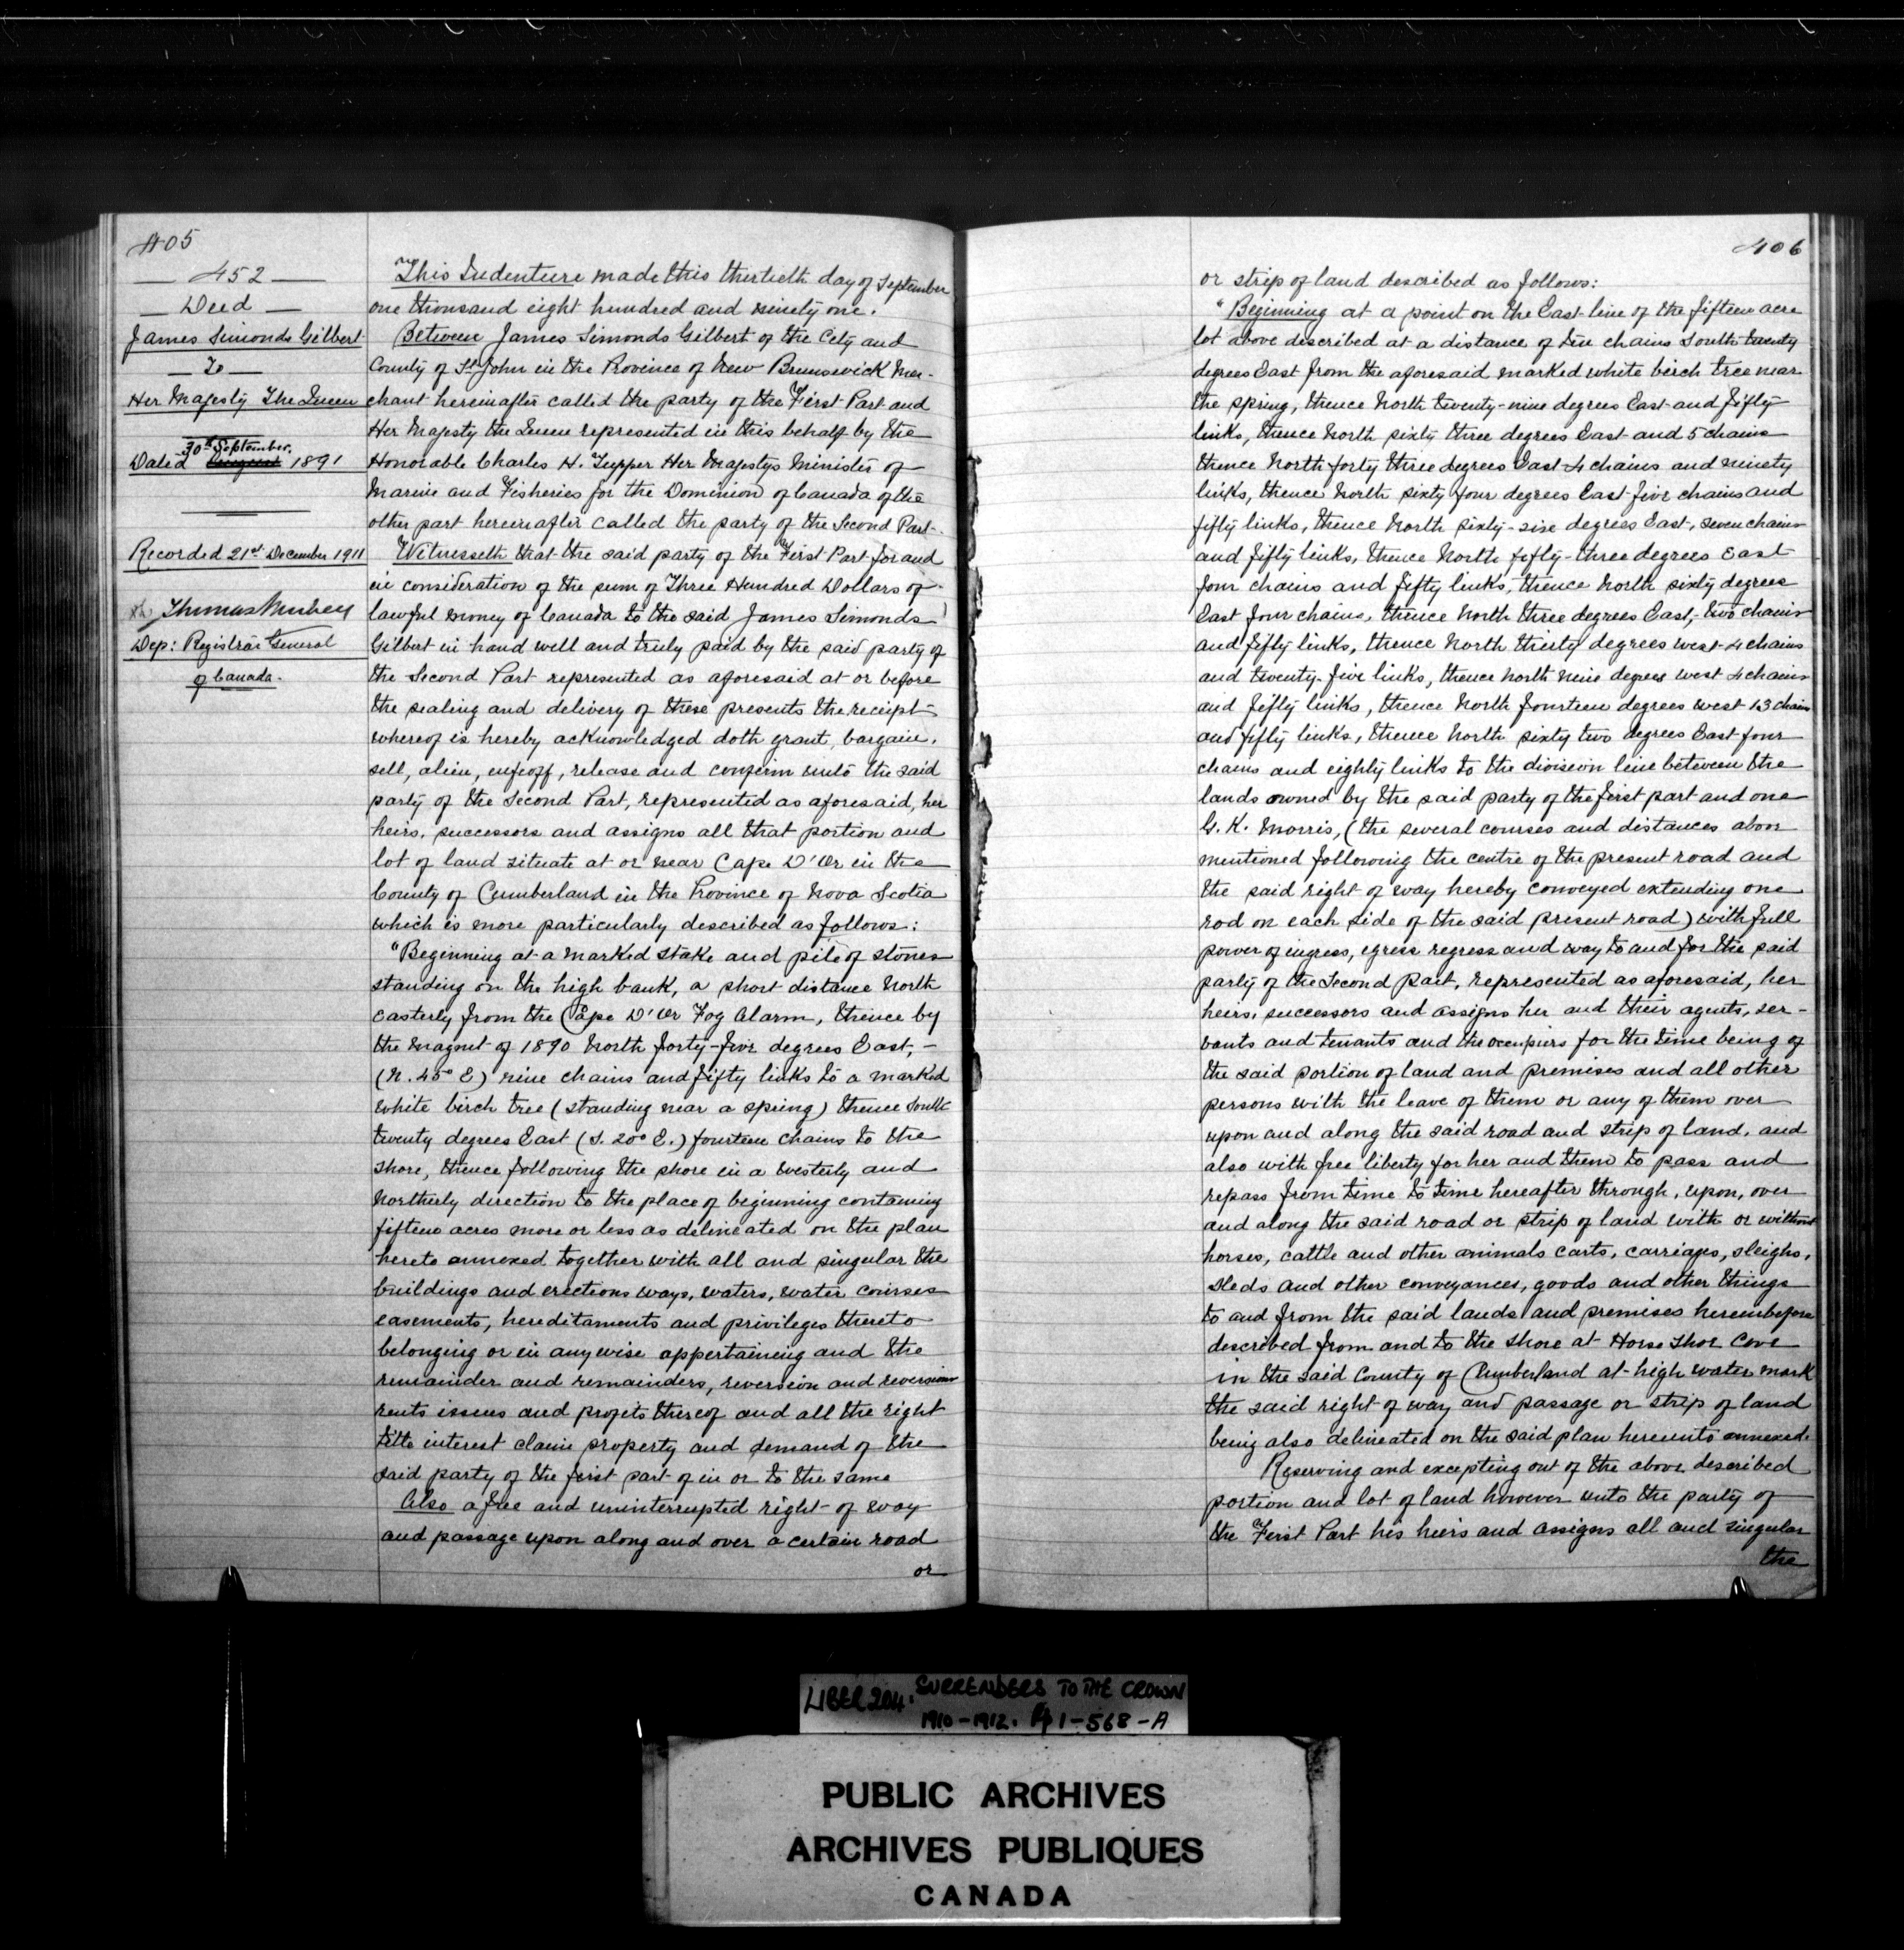 405
— 452 —
— Deed —
James Simonds Gilbert
— To —
Her Majesty The Queen
30th September.
Dated August 1891
Recorded 21st December 1911
Dep: Registrar General
of Canada.
This Indenture made this thirtieth day of September
one thousand eight hundred and ninety one.
Between James Simonds Gilbert of the City and
County of St John in the Province of New Brunswick Mer-
chant hereinafter called the party of the First Part and
Her Majesty the Queen represented in this behalf by the
Honorable Charles H. Tupper Her Majestys Minister of
Marine and Fisheries for the Dominion of Canada of the
other part hereinafter called the party of the Second Part.
Witnesseth that the said party of the First Part for and
in consideration of the sum of Three Hundred Dollars of
lawful money of Canada to the said James Simonds
Gilbert in hand well and truly paid by the said party of
the Second Part represented as aforesaid at or before
the sealing and delivery of these presents the receipt
whereof is hereby acknowledged doth grant, bargain,
sell, alien, enfeoff, release and confirm unto the said
party of the Second Part, represented as aforesaid, her
heirs, successors and assigns all that portion and
lot of land situate at or near Cape D'Or in the
County of Cumberland in the Province of Nova Scotia
which is more particularly described as follows:
"Beginning at a marked stake and pile of stones
standing on the high bank, a short distance North
easterly from the Cape D'Or Fog Alarm, thence by
the magnet of 1890 North forty-five degrees East, —
(N. 45° E) nine chains and fifty links to a marked
white birch tree (standing near a spring) thence South
twenty degrees East (S. 20° E.) fourteen chains to the
shore, thence following the shore in a westerly and
Northerly direction to the place of beginning containing
fifteen acres more or less as delineated on the plan
hereto annexed together with all and singular the
buildings and erections ways, waters, water courses
easements, hereditaments and privileges thereto
belonging or in anywise appertaining and the
remainder and remainders, reversion and reversions
rents issues and profits thereof and all the right
title interest claim property and demand of the
said party of the first part of in or to the same
Also a free and uninterrupted right of way
and passage upon along and over a certain road
or
406
or strip of land described as follows:
"Beginning at a point on the East line of the fifteen acre
lot above described at a distance of ten chains South twenty
degrees East from the aforesaid marked white birch tree near
the spring, thence North twenty-nine degrees East and fifty
links, thence North sixty three degrees East and 5 chains
thence North forty three degrees East 4 chains and ninety
links, thence North sixty four degrees East five chains and
fifty links, thence North sixty-six degrees East, seven chains
and fifty links, thence North fifty-three degrees East
four chains and fifty links, thence North sixty degrees
East four chains, thence North three degrees East, two chains
and fifty links, thence North thirty degrees west 4 chains
and twenty-five links, thence north nine degrees west 4 chains
and fifty links, thence North fourteen degrees west 13 chains
and fifty links, thence North sixty two degrees East four
chains and eighty links to the division line between the
lands owned by the said party of the first part and one
G. K. Morris, (the several courses and distances above
mentioned following the centre of the present road and
the said right of way hereby conveyed extending one
rod on each side of the said present road) with full
power of ingress, egress regress and way to and for the said
party of the Second Part, represented as aforesaid, her
heirs, successors and assigns her and their agents, ser-
vants and tenants and the occupiers for the time being of
the said portion of land and premises and all other
persons with the leave of them or any of them over
upon and along the said road and strip of land, and
also with free liberty for her and them to pass and
repass from time to time hereafter through, upon, over
and along the said road or strip of land with or without
horses, cattle and other animals carts, carriages, sleighs,
sleds and other conveyances, goods and other things
to and from the said lands and premises hereinbefore
described from and to the shore at Horse Shoe Cove
in the said County of Cumberland at high water mark
the said right of way and passage or strip of land
being also delineated on the said plan hereunto annexed.
Reserving and excepting out of the above described
portion and lot of land however unto the party of
the First Part his heirs and assigns all and singular
the
LIBER 204. SURRENDERS TO THE CROWN
1910-1912. Pp 1-568-A
PUBLIC ARCHIVES
ARCHIVES PUBLIQUES
CANADA